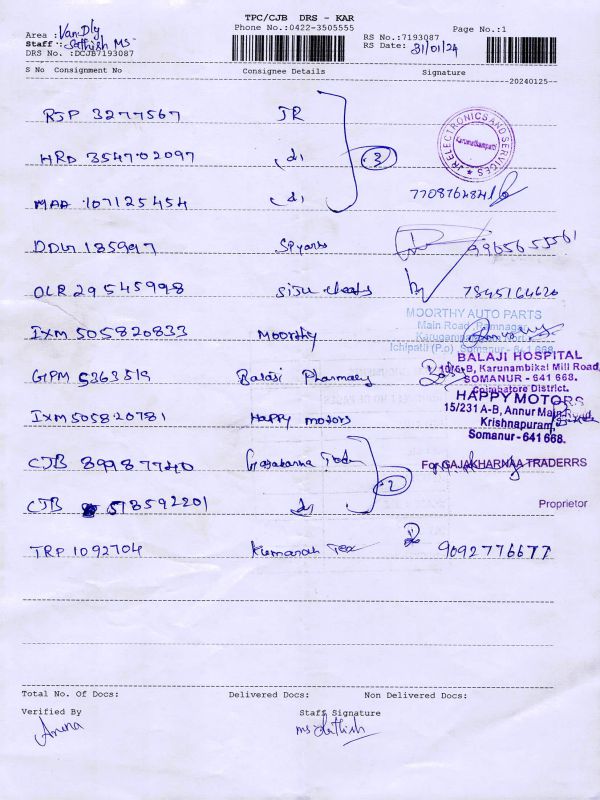 TPC/CJB DRS - KAR
Phone No.:0422-3505555
Page No.:1
Area : Van Dly
Staff : Sathish MS
DRS No. :DCJB7193087
RS No.:7193087
RS Date: 31/01/24
S No Consignment No Consignee Details Signature
20240125
RJP 3277567 JR
ELECTRONICS AND SERVICES
Karumathampatti
HRD 354702097 di 3
MAA 107125454 di 7708764841
DDU 185997 Spyarns 9965655561
OLR 29545998 7845764620
MOORTHY AUTO PARTS
Main Road, Ramnagar
IXM 505820833 Moorthy
Ichipatti (P.o) Somanur - 641 668.
BALAJI HOSPITAL
10/6-B, Karunambikai Mill Road,
GPM 5363519 Balaji Pharmacy
SOMANUR - 641 668.
Coimbatore District.
HAPPY MOTORS
15/231 A-B, Annur Main Road,
IXM 505820781 Happy motors
Krishnapuram,
Somanur - 641 668.
CJB 89987740 Gajakarna
For GAJAKHARNAA TRADERRS
CJB 518592201 di 2
Proprietor
TRP 1092704 Kumaran Tex 9092776677
Total No. Of Docs: Delivered Docs: Non Delivered Docs:
Verified By Staff Signature
Aruna ms Sathish